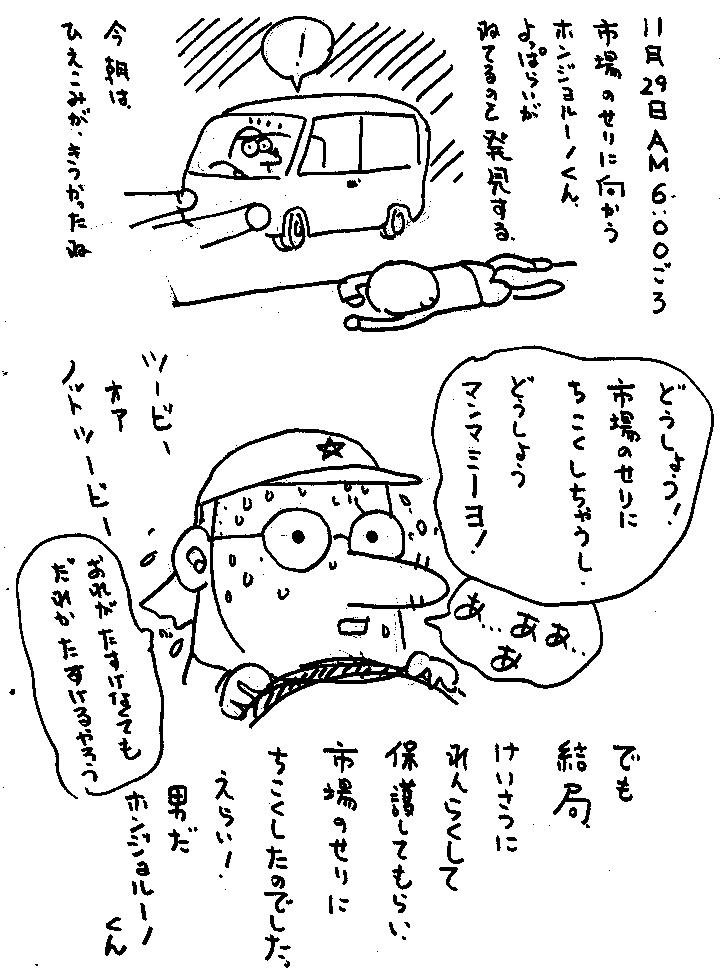 11月29日AM6:00ごろ
市場のせりに向かう
ホンジョルーノくん、
よっぱらいが
ねてるのを発見する。
!
今朝は、
ひえこみが、きつかったね
どうしよう!
市場のせりに
ちこくしちゃうし、
どうしよう
マンマミーヨ!
あ…ああ…
あ
ツービー
オア
ノットツービー
おれがたすけなくても
だれかたすけるやろう
でも
結局、
けいさつに
れんらくして
保護してもらい、
市場のせりに
ちこくしたのでした。
えらい!
男だ
ホンジョルーノ
くん